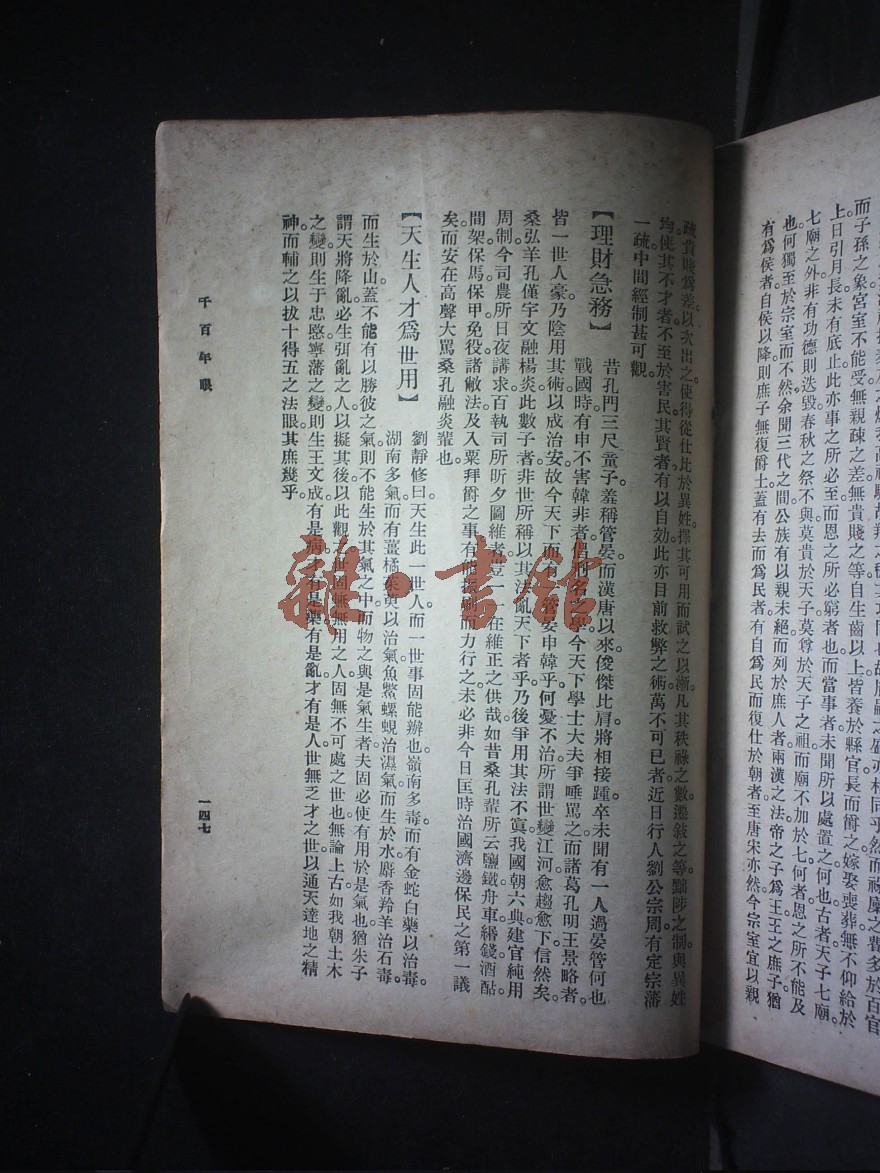 而子孫之象宮室不能受無親疎之差無貴賤之等自生齒以上皆養於縣官長而爵之嫁娶喪葬無不仰給於
上日引月長未有底止此亦事之所必至而恩之所必窮者也而當事者未聞所以處置之何也古者天子七廟
七廟之外非有功德則迭毀春秋之祭不與莫貴於天子莫尊於天子之祖而廟不加於七何者恩之所不能及
也何獨至於宗室而不然余聞三代之間公族有以親未絕而列於庶人者兩漢之法帝之子爲王王之庶子猶
有爲侯者自侯以降則庶子無復爵土蓋有去而爲民者有自爲民而復仕於朝者至唐宋亦然今宗室宜以親
疏貴賤爲差以次出之使得從仕比於異姓擇其可用而試之以漸凡其秩祿之數遷敍之等黜陟之制與異姓
均使其不才者不至於害民其賢者有以自效此亦目前救弊之術萬不可已者近日行人劉公宗周有定宗藩
一疏中間經制甚可觀
【理財急務】
昔孔門三尺童子羞稱管晏而漢唐以來俊傑比肩將相接踵卒未聞有一人過晏管何也
戰國時有申不害韓非者皆刑名之學今天下學士大夫爭唾罵之而諸葛孔明王景略者
皆一世人豪乃陰用其術以成治安故今天下而有管晏申韓乎何憂不治所謂世變江河愈趨愈下信然矣
桑弘羊孔僅宇文融楊炎此數子者非世所稱以其法亂天下者乎乃後爭用其法不寘我國朝六典建官純用
周制今司農所日夜講求百執司所昕夕圖維者豈一在維正之供哉如昔桑孔輩所云鹽鐵舟車緡錢酒酤
間架保馬保甲免役諸敝法及入粟拜爵之事有能振刷而力行之未必非今日匡時治國濟邊保民之第一議
矣而安在高聲大罵桑孔融炎輩也
【天生人才爲世用】
劉靜修曰天生此一世人而一世事固能辦也嶺南多毒而有金蛇白藥以治毒
湖南多氣而有薑橘茱萸以治氣魚鱉螺蜆治濕氣而生於水麝香羚羊治石毒
而生於山蓋不能有以勝彼之氣則不能生於其氣之中而物之與是氣生者夫固必使有用於是氣也猶朱子
謂天將降亂必生弭亂之人以擬其後以此觀世固無無用之人固無不可處之世也無論上古如我朝土木
之變則生于忠愍寧藩之變則生王文成有是病才有是藥有是亂才有是人世無乏才之世以通天達地之精
神而輔之以拔十得五之法眼其庶幾乎
千百年眼
一四七
雜·書館